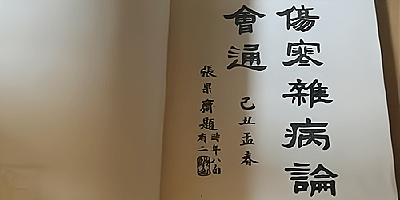 傷寒雜病論
會通
己丑孟春
張果齋題
時年八
有二